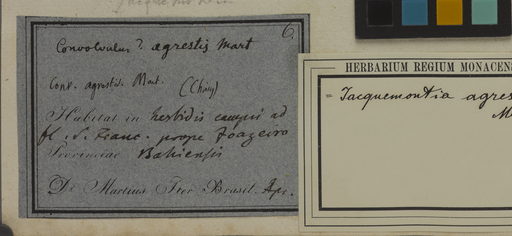 6.
Convolvulus? agrestis Mart
Conv. agrestis. Mart.
(Choisy)
Habitat in herbidis campis ad
fl. S. Franc. prope Joazeiro
Provinciae Bahiensis
Dr Martius Iter Brasil. Apr.
HERBARIUM REGIUM MONACENS
= Jacquemontia agres
M